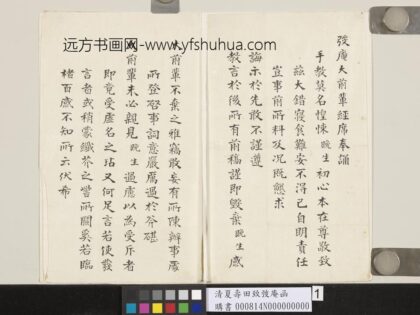 远方书画网-www.yfshuhua.com
弢庵大前輩經席奉誦
手教莫名惶悚既生初心本在尊敬致
茲大錯寢食難安不得已自明責任
豈事前所料及况既懇求
誨示於先敢不謹遵
教言於後所有前稿謹即毀棄既生感
大前輩不棄之雅竊敢妄有所陳辦事處
所登啓事詞意嚴厲過於斧碪
大前輩未必親見既生過慮以為受斥者
即竟受虛名之玷又何足言若使發
言者或稍蒙纖芥之訾所關奚若臨
楮百感不知所云伏希
清夏壽田致弢庵函
購書 000814N000000000
1